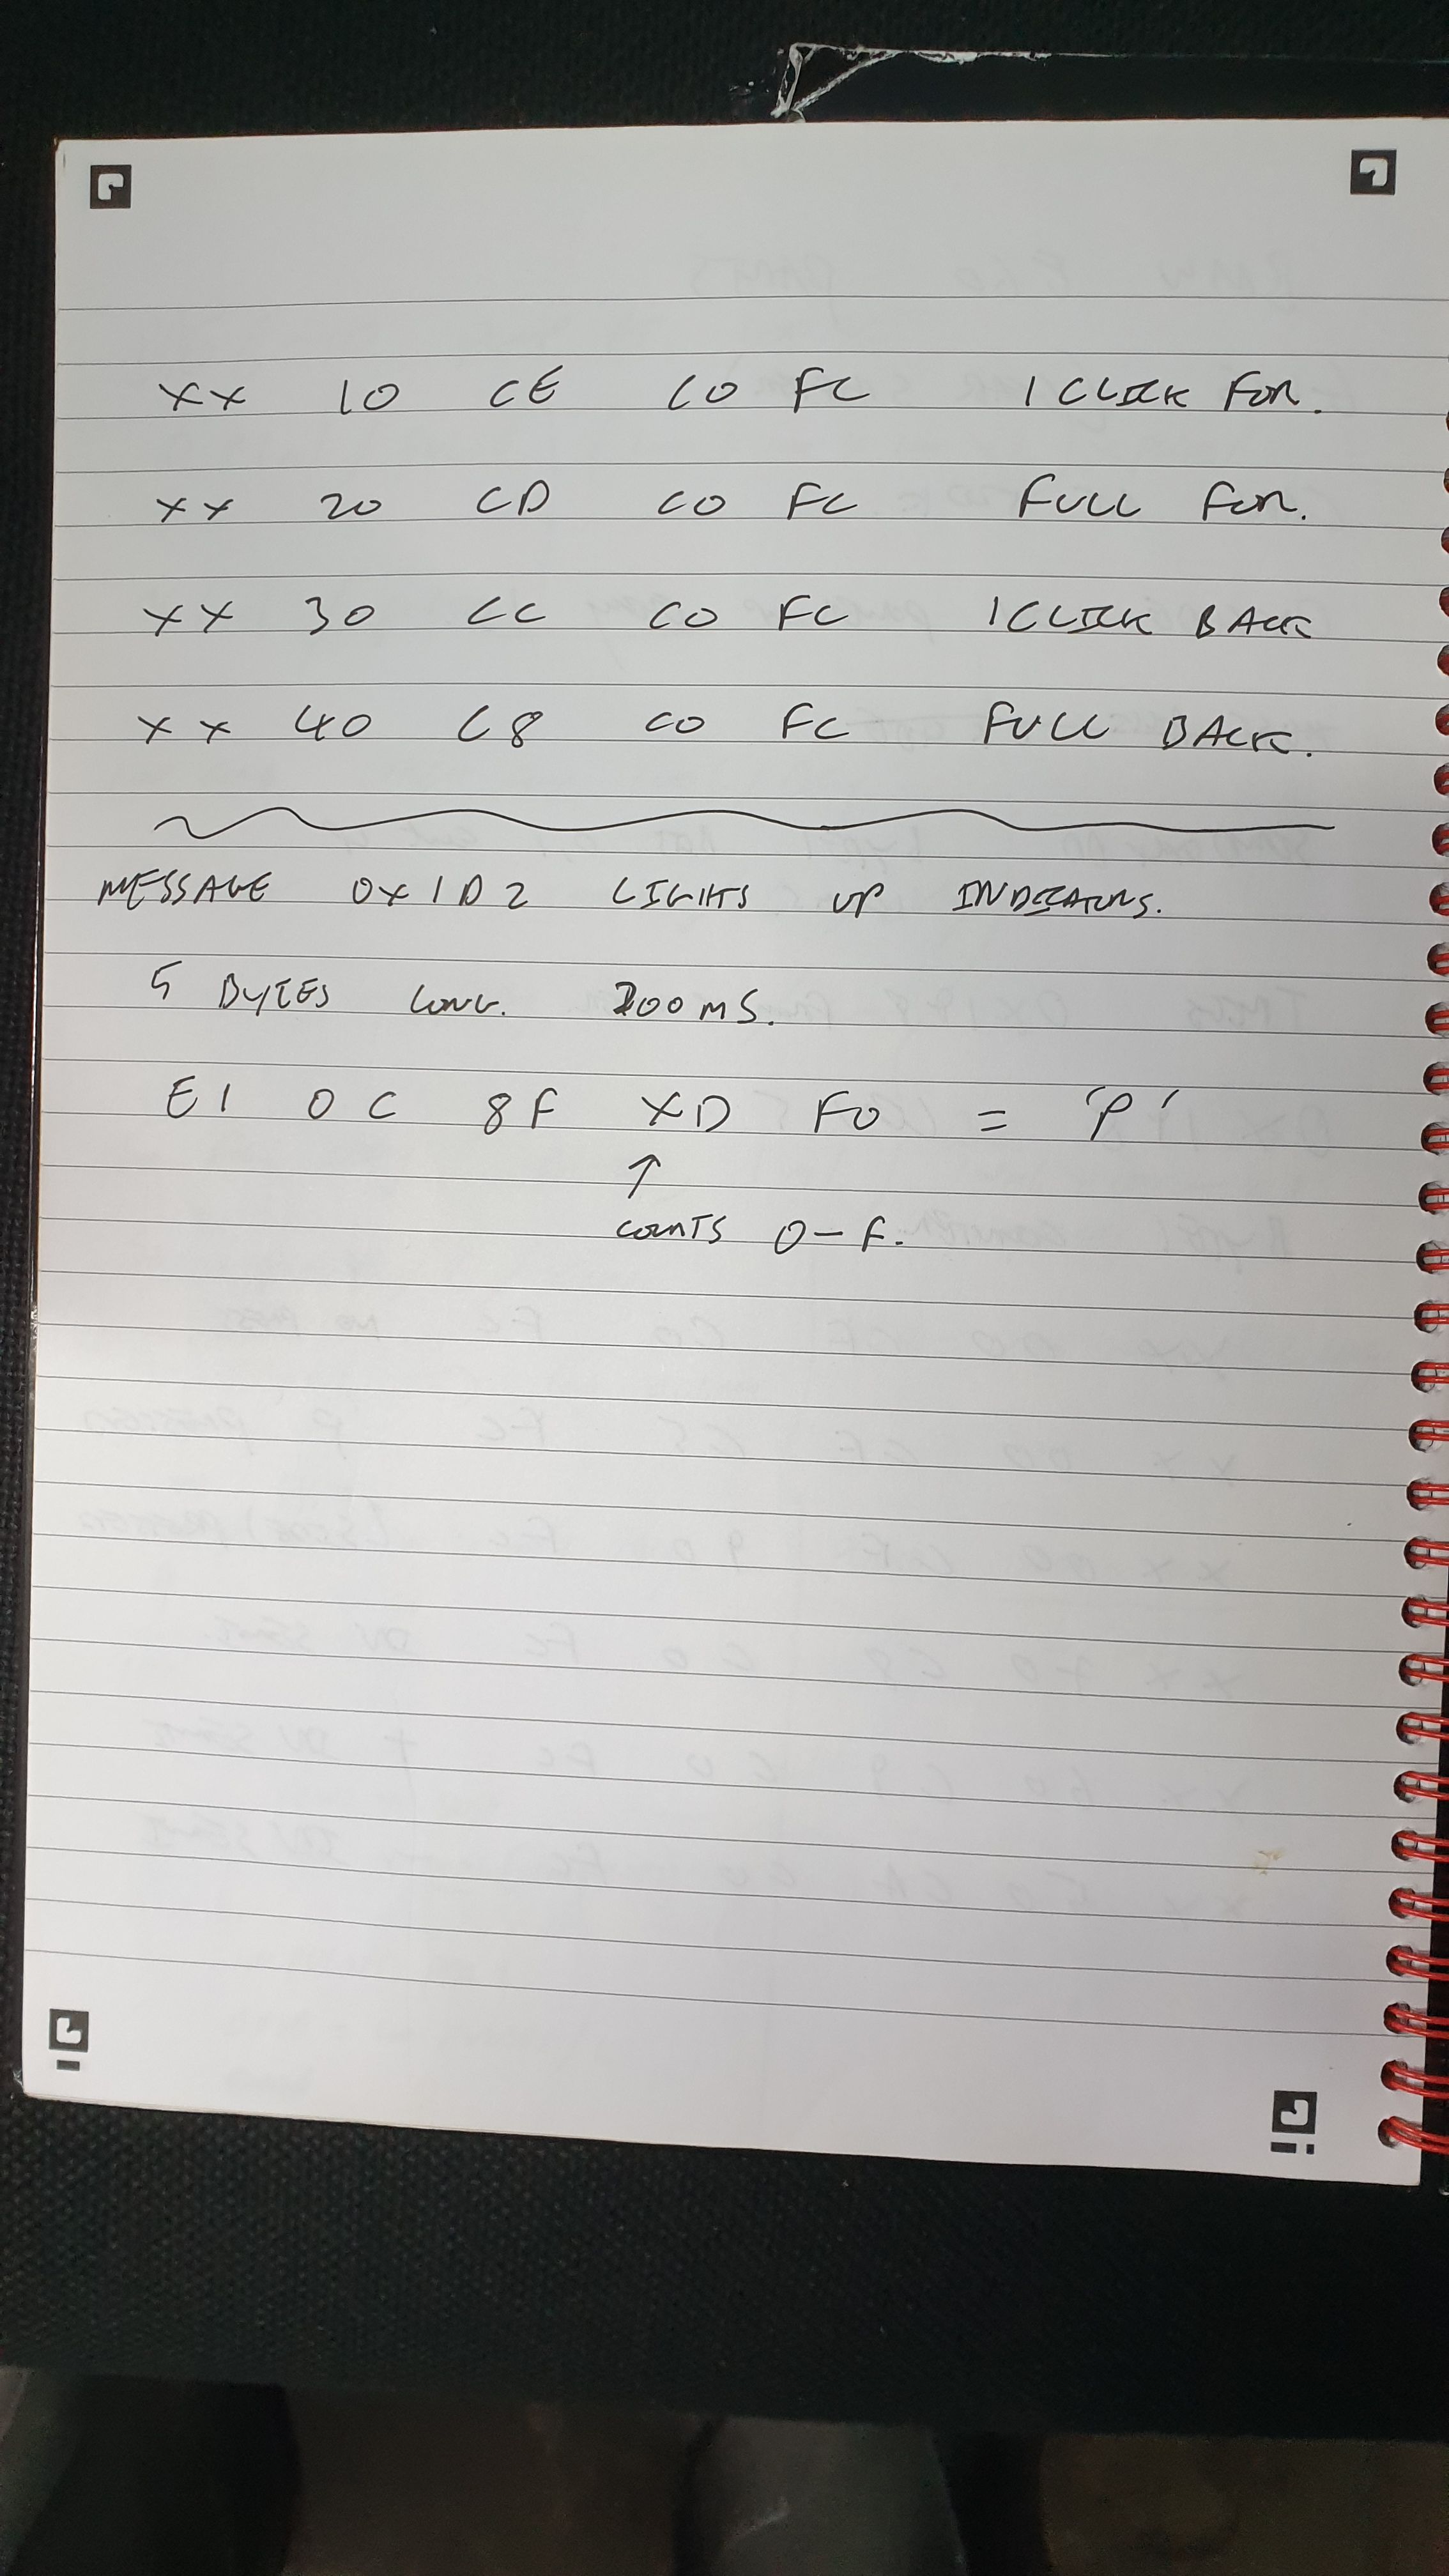 XX 10 CE CO FC 1 CLICK FOR.
XX 20 CD CO FC FULL FOR.
XX 30 CC CO FC 1 CLICK BACK
XX 40 C8 CO FC FULL BACK.
MESSAGE 0X1D2 LIGHTS UP INDICATORS.
5 BYTES LONG. 200MS.
E1 0C 8F XD F0 = 'P'
↑
COUNTS 0-F.